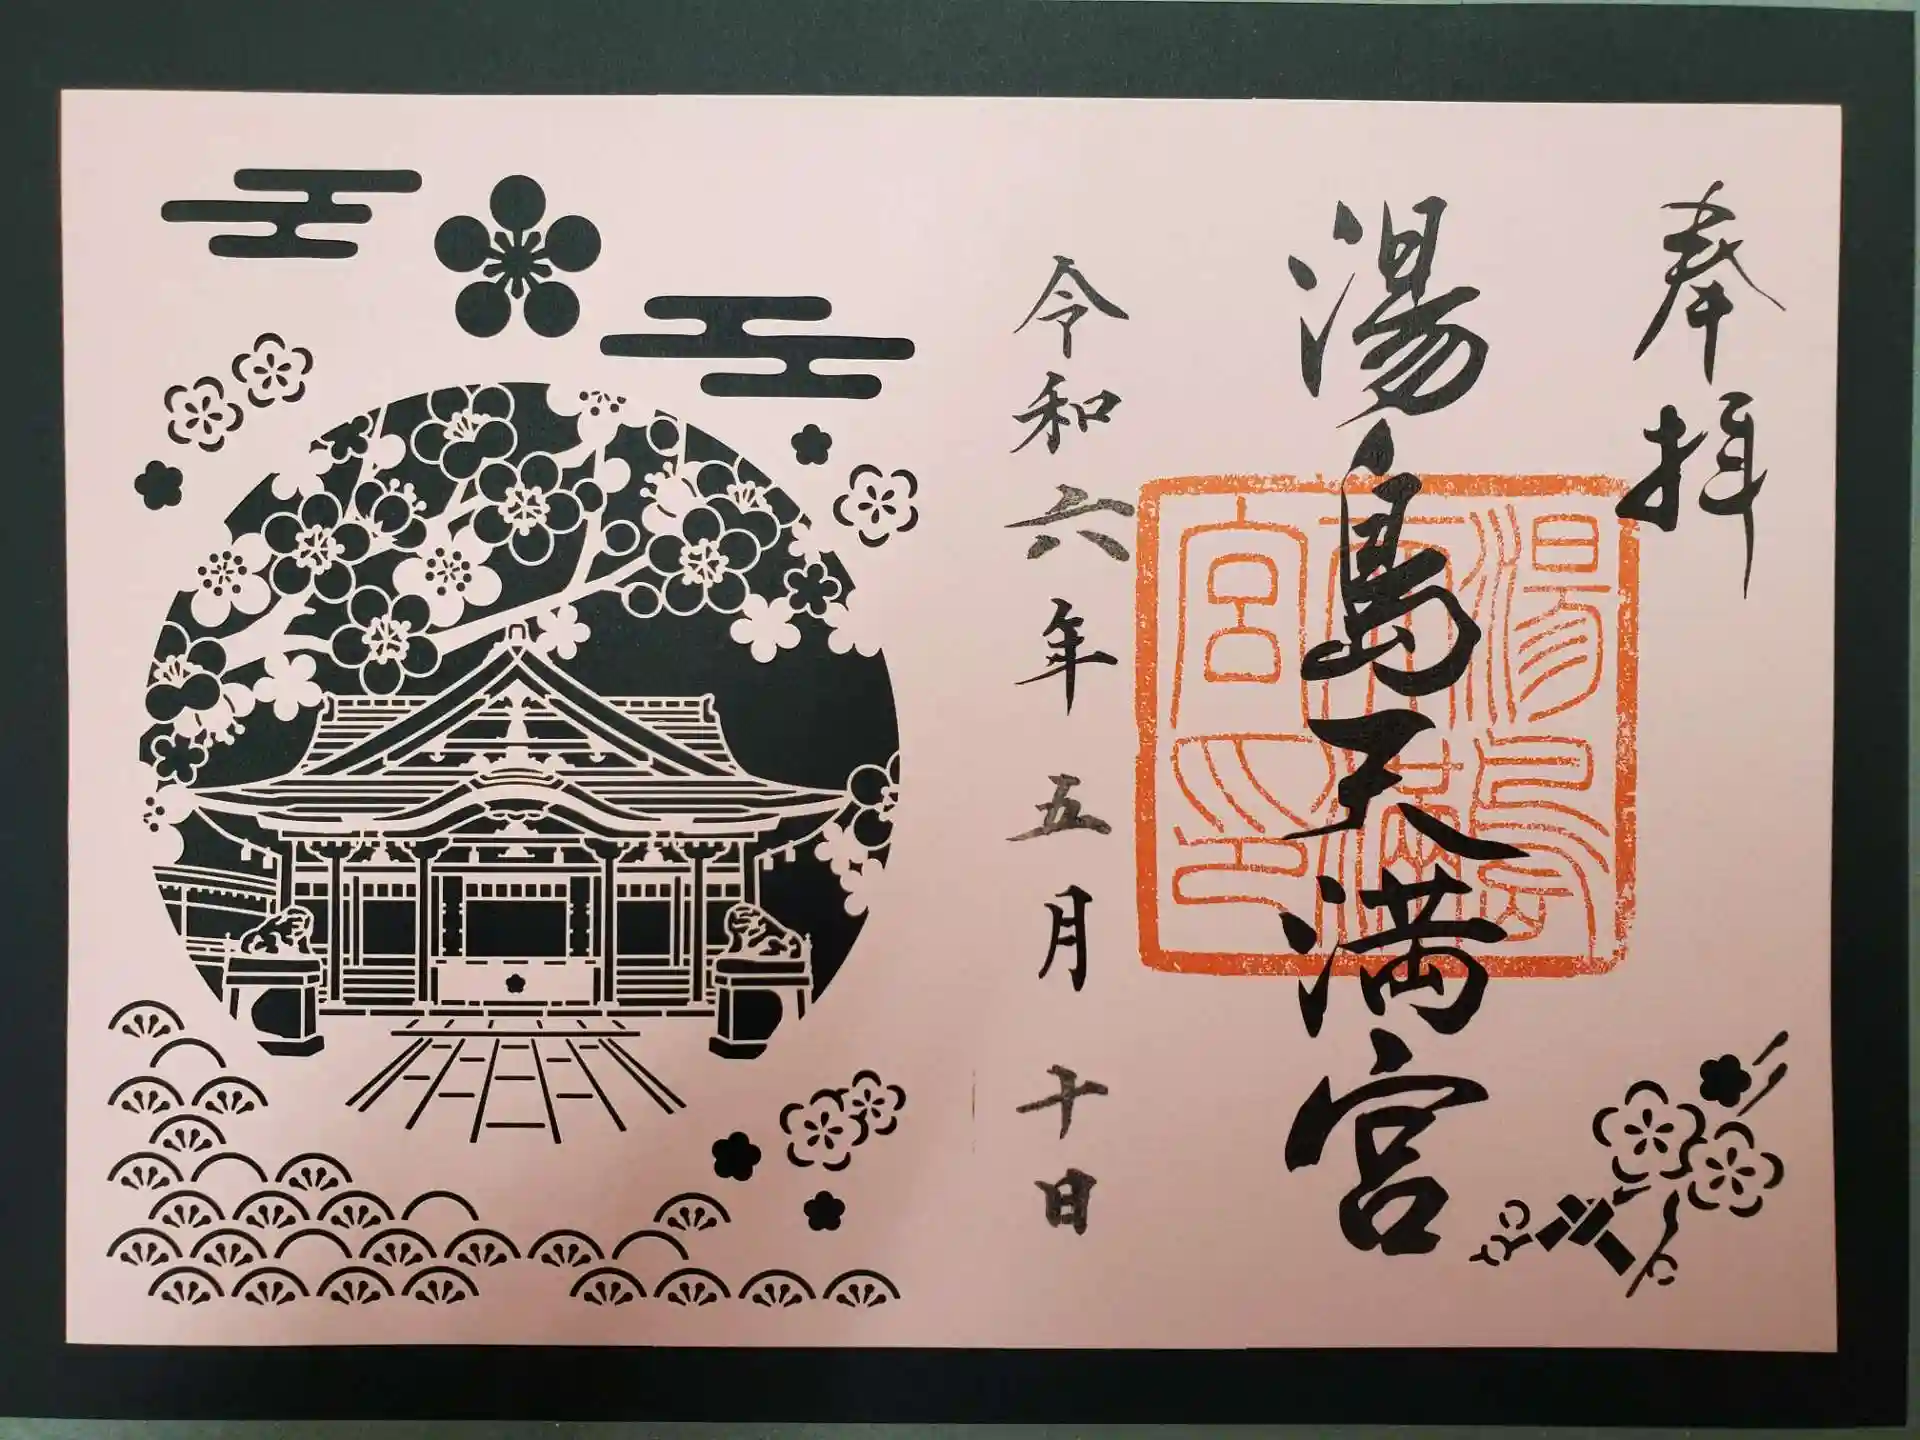 奉拝
湯島天満宮
湯島天満宮印
令和六年五月十日